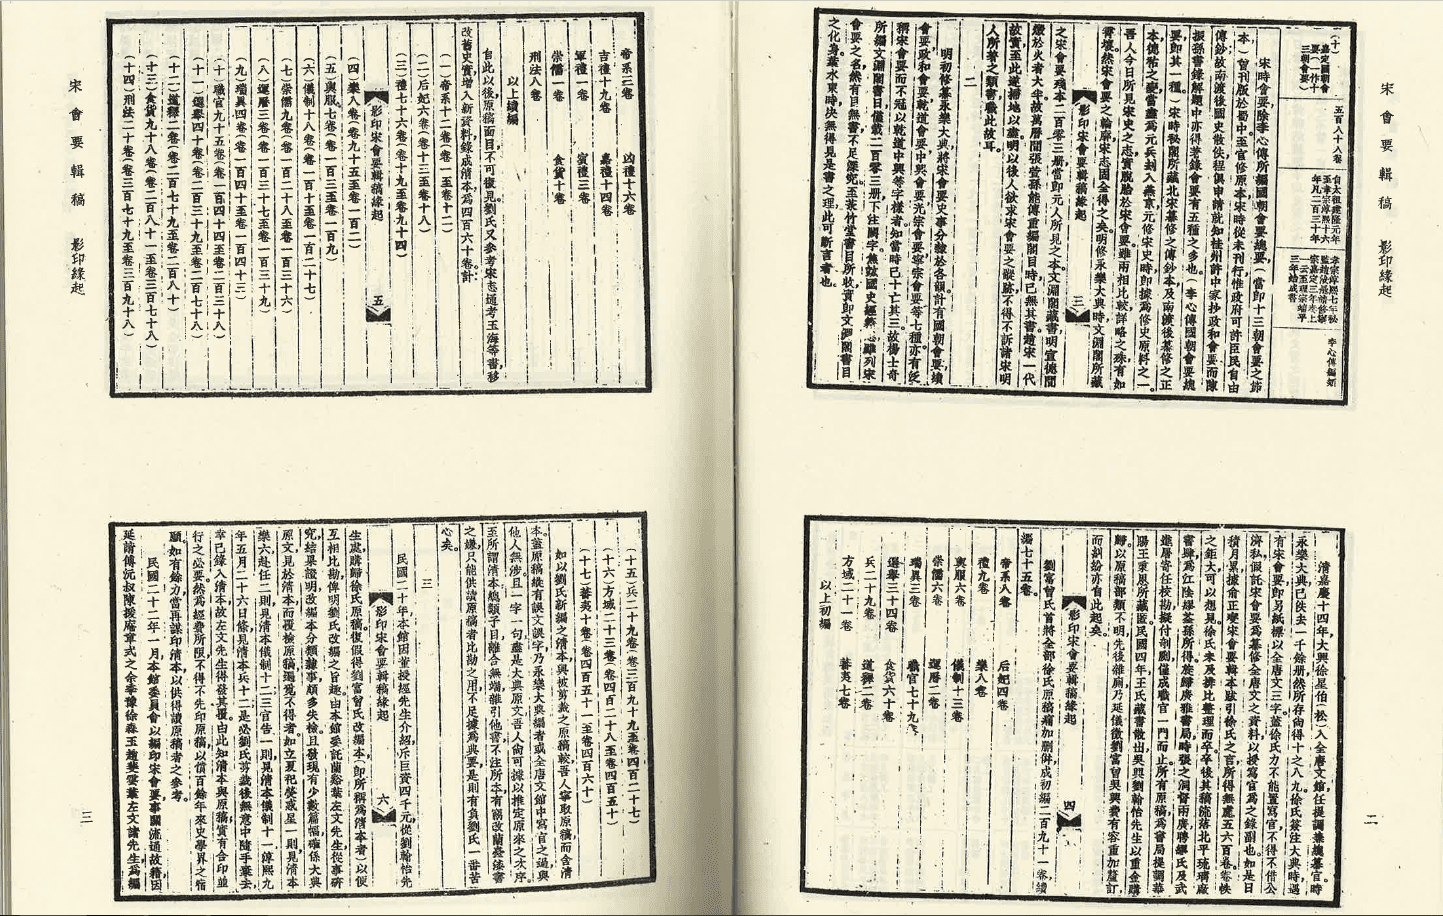 宋會要輯稿 影印緣起
(十)嘉定國朝會要(一作十三朝會要)
五百八十八卷
自太祖建隆元年至孝宗淳熙十六年凡二百三十年
李心傳編類
宋時會要除李心傳所編國朝會要總要(當卽十三朝會要之節
本)曾刊版於蜀中至官修原本宋時從未刊行惟政府可許臣民自由
傳鈔故南渡後國史散佚程俱申請就知桂州許中家抄政和會要而陳
振孫書錄解題中亦得著錄會要有五種之多也。李心傳國朝會要總
要卽其一種)宋時秘閣所藏北宋纂修之傳鈔本及南渡後纂修之正
本德祐之變當盡爲元兵刦入燕京元修宋史時卽據爲修史原料之一。
吾人今日所見宋史之志實脫胎於宋會要雖兩相比較詳略之殊有如
霄壤然宋會要之輪廓宋志固全得之矣明修永樂大典時文淵閣所藏
影印宋會要輯稿緣起
三
之宋會要殘本二百零三册當卽元人所見之本文淵閣藏書明宣德間
燬於火者大半故萬曆間張萱孫能傳重編閣目時已無其書趙宋一代
故實至此遂掃地以盡明以後人欲求宋會要之蹤跡不得不訴諸宋明
人所著之類書職此故耳。
二
明初修纂永樂大典將宋會要史事分隸於各韻計有國朝會要續
會要政和會要乾道會要中興會要光宗會要寧宗會要等七種亦有泛
稱宋會要而不冠以乾道中興等字樣者知當時已十亡其三故楊士奇
所編文淵閣書目僅載二百零三册下注闕字焦竑國史經籍志雖列宋
會要之名然有目無書不足深究至菉竹堂書目所收實卽文淵閣書目
之化身葉水東時決無得見是書之理此可斷言者也。
清嘉慶十四年大興徐星伯(松)入全唐文館任提調兼總纂官時
永樂大典已佚去一千餘册然所存尙得十之八九徐氏簽注大典時遇
有宋會要卽另紙標以全唐文三字蓋徐氏力不能置寫官不得不借公
濟私假託宋會要爲纂修全唐文之資料以授寫官爲之錄副也如是日
積月累據俞正燮宋會要輯本跋引徐氏之言所得無慮五六百卷卷帙
之鉅大可以想見徐氏未及排比整理而卒卒後其稿流落北平琉璃廠
書肆爲江陰繆荃孫所得旋歸廣雅書局時張之洞督兩廣聘繆氏及武
進屠寄任校勘擬付剞劂僅成職官一門而止所有原稿爲書局提調華
陽王秉恩所藏匿民國四年王氏藏書散出吳興劉翰怡先生以重金購
歸以原稿部類不明先後雜廁乃延儀徵劉富曾吳興費有容重加釐訂
而糾紛亦自此起矣。
影印宋會要輯稿緣起
四
劉富曾氏首將全部徐氏原稿痛加刪併成初編二百九十一卷續
編七十五卷。
帝系八卷 后妃四卷
禮九卷 樂八卷
輿服六卷 儀制十三卷
崇儒六卷 運曆二卷
瑞異三卷 職官七十九卷
選舉三十四卷 食貨六十卷
兵二十九卷 道釋二卷
方域二十一卷 蕃夷七卷
以上初編
二
宋會要輯稿 影印緣起
帝系三卷 凶禮十六卷
吉禮十九卷 嘉禮十四卷
軍禮一卷 賓禮三卷
崇儒一卷 食貨十卷
刑法八卷
以上續編
自此以後原稿面目不可復見劉氏又參考宋志通考玉海等書移
改舊史實增入新資料錄成清本爲四百六十卷計
(一)帝系十二卷(卷一至卷十二)
(二)后妃六卷(卷十三至卷十八)
(三)禮七十六卷(卷十九至卷九十四)
影印宋會要輯稿緣起
五
(四)樂八卷(卷九十五至卷一百二)
(五)輿服七卷(卷一百三至卷一百九)
(六)儀制十八卷(卷一百十至卷一百二十七)
(七)崇儒九卷(卷一百二十八至卷一百三十六)
(八)運曆三卷(卷一百三十七至卷一百三十九)
(九)瑞異四卷(卷一百四十至卷一百四十三)
(十)職官九十五卷(卷一百四十四至卷二百三十八)
(十一)選舉四十卷(卷二百三十九至卷二百七十八)
(十二)道釋二卷(卷二百七十九至卷二百八十)
(十三)食貨九十八卷(卷二百八十一至卷三百七十八)
(十四)刑法二十卷(卷三百七十九至卷三百九十八)
(十五)兵二十九卷(卷三百九十九至卷四百二十七)
(十六)方域二十三卷(卷四百二十八至卷四百五十)
(十七)蕃夷十卷(卷四百五十一至卷四百六十)
如以劉氏新編之清本與被剪裁之原稿較吾人寧取原稿而舍清
本蓋原稿縱有誤文誤字乃永樂大典編者或全唐文館中寫官之過與
他人無涉且一字一句盡是大典原文吾人尙可據以推定原來之次序
至所謂清本總類子目離合無端雜引他書不注所本有竄改蘭臺漆書
之嫌只能供讀原稿者比勘之用不足據爲典要是則有負劉氏一番苦
心矣。
三
民國二十年本館因董授經先生介紹斥巨資四千元從劉翰怡先
影印宋會要輯稿緣起
六
生處購歸徐氏原稿復假得劉富曾氏改編本(卽所稱爲清本者)以便
互相比勘俾明劉氏改編之旨趣由本館委託蘭谿葉左文先生從事研
究結果證明改編本分類隸事頗多失檢且發現有少數篇幅確係大典
原文見於清本而覆檢原稿遍覓不得者如立夏祀熒惑星一則見清本
樂六赴任二則見清本儀制十二三官告一則見清本儀制十一淳熙九
年五月二十六日條見清本兵十二是必劉氏剪裁後無意中隨手棄去
幸已錄入清本故左文先生得發其覆由此知清本與原稿實有合印並
行之必要然爲經費所限不得不先印原稿以償百餘年來史學界之宿
願如有餘力當再謀印清本以供得讀原稿者之參考。
民國二十二年一月本館委員會以編印宋會要事關流通故籍因
延請傅沅叔陳援庵章式之余季豫徐森玉趙斐雲葉左文諸先生爲編
三